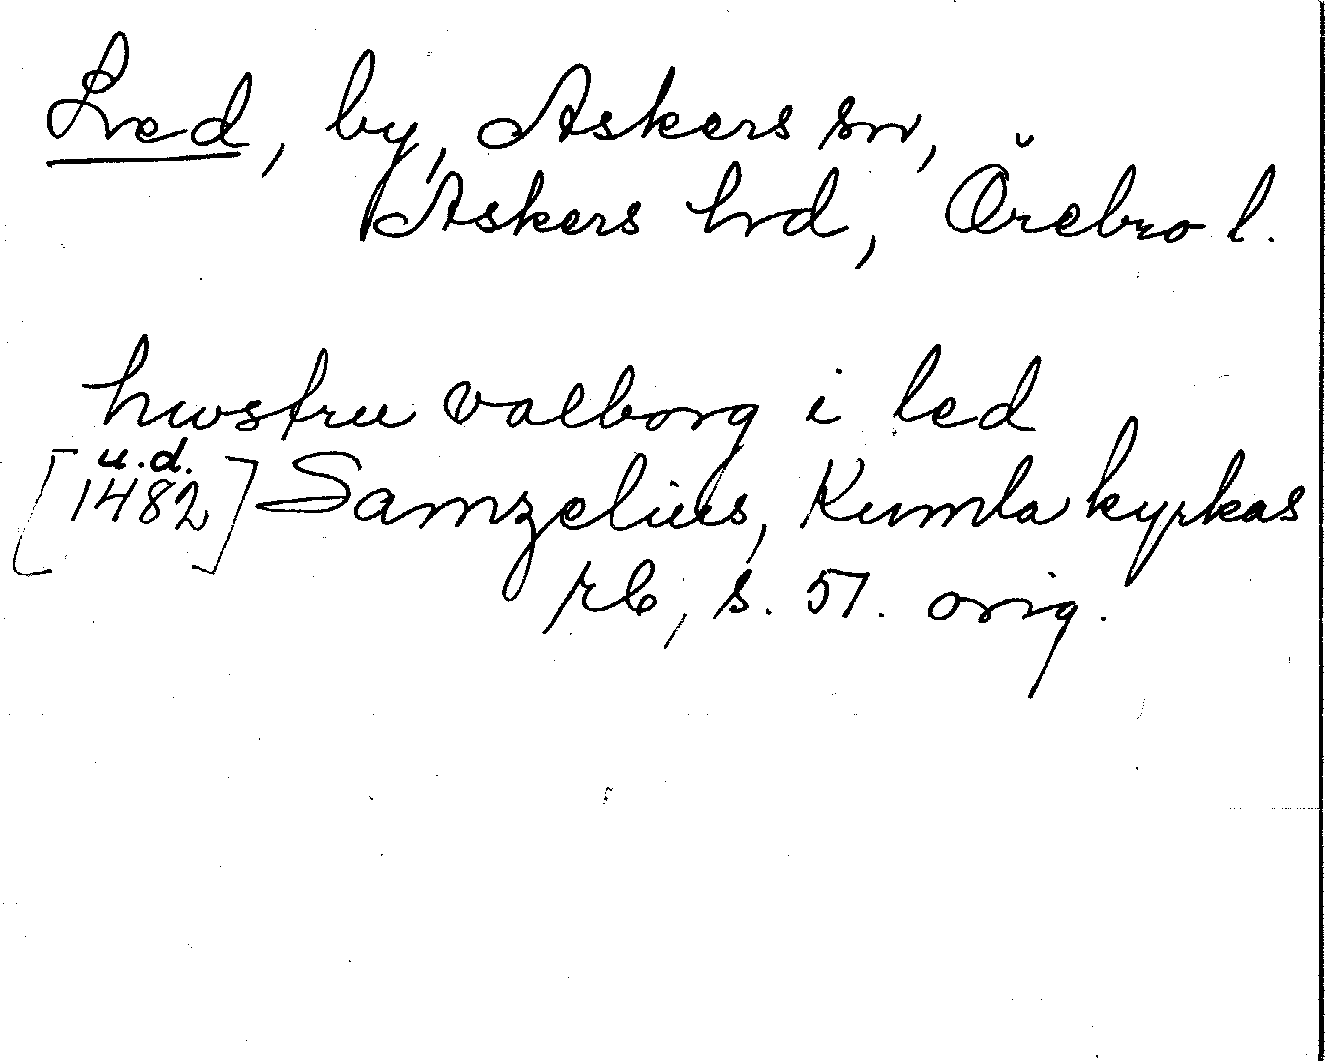 Led, by, Askers sn,
Askers hd, Örebro l.
hwstru valborg i led
[u.d. 1482] Samzelius, Kumla kyrkas
rb, s. 57. orig.